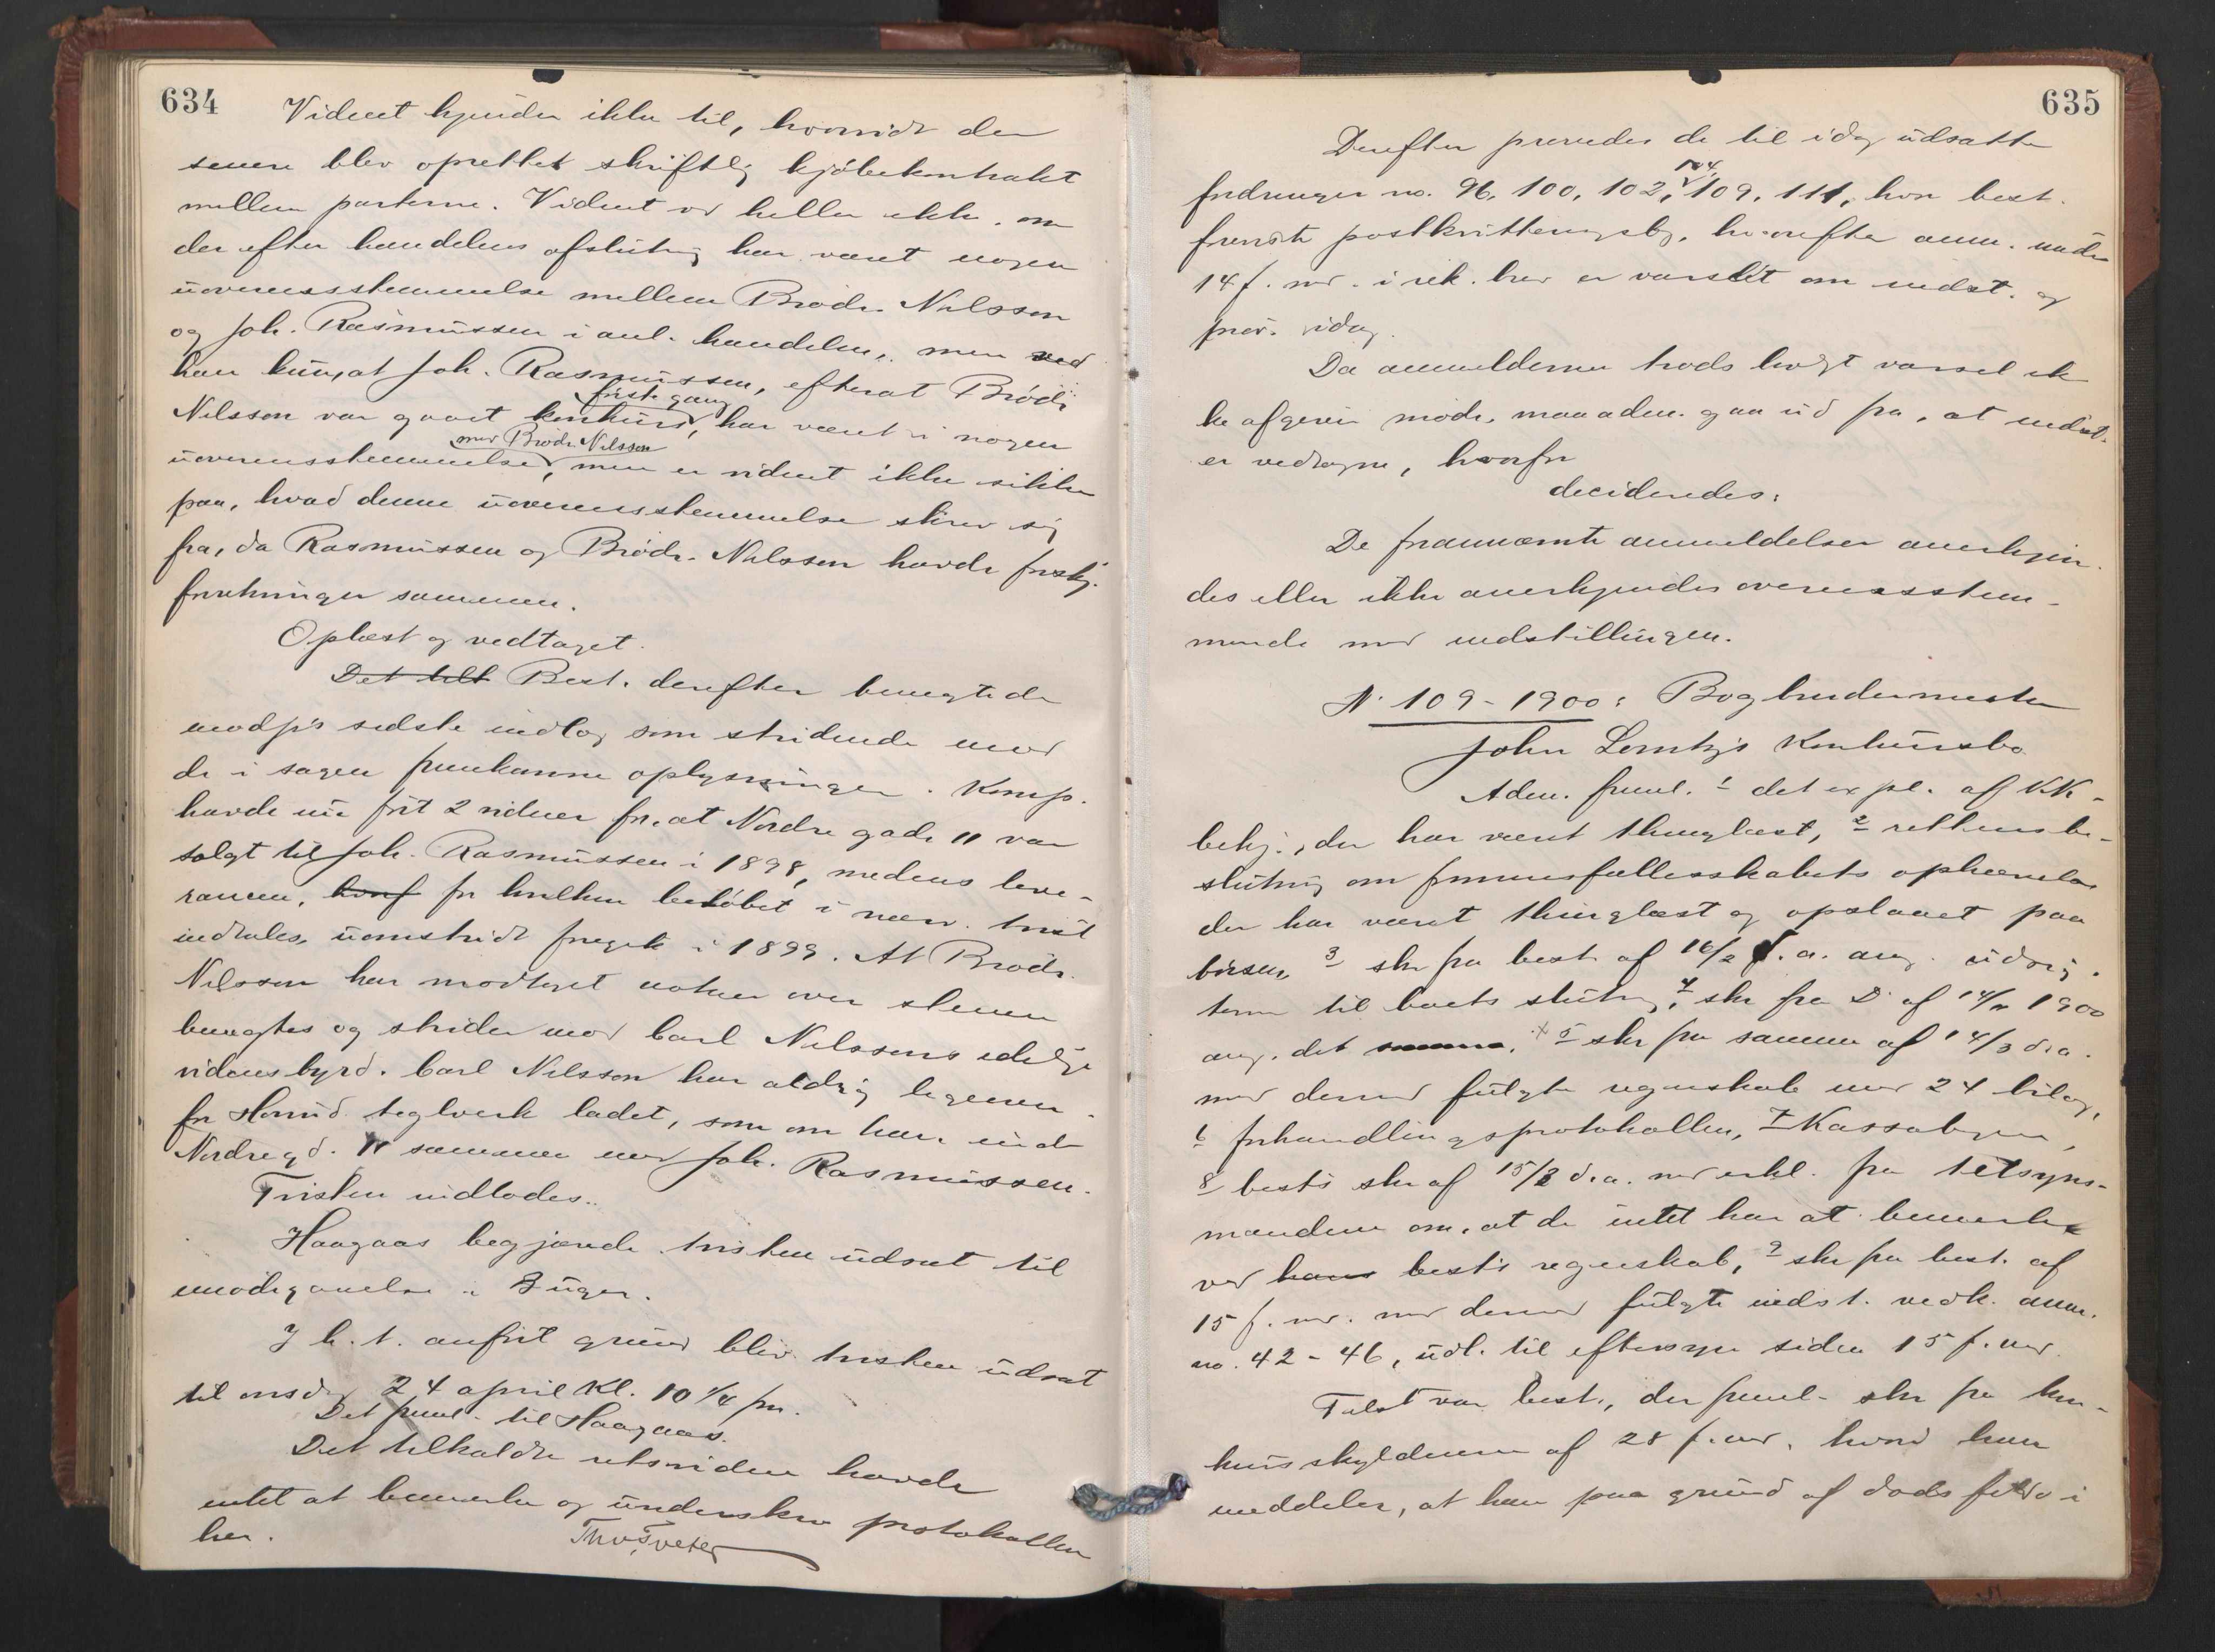 634
Vidnet kjender ikke til, hvorvidt der
senere blev oprettet skriftlig kjøbekontrakt
mellem parterne. Vidnet ved heller ikke, om
der efter handelens afslutning har været nogen
uoverensstemmelse mellem Brødr. Nilsson
og Joh. Rasmussen i anl. handelen, men ved
han kun, at Joh. Rasmussen, efterat Brødr.
første gang
Nilsson var gaaet konkurs, har været i nogen
med Brødr. Nilsson
uoverensstemmelse, men er vidnet ikke sikker
paa, hvad denne uoverensstemmelse skrev sig
fra, da Rasmussen og Brødr. Nilsson havde forskj.
forretninger sammen.
Oplæst og vedtaget.
Det tilk Best. derefter benegtede
modp's sidste indlæg som stridende mod
de i sagen fremkomne oplysninger. Komp.
havde nu ført 2 vidner for, at Nordre gade 11 var
solgt til Joh. Rasmussen i 1898, medens leve-
rancen, for hvilken beløbet i nærv. tvist
indtales, uomstridt foregik i 1899. At Brødr.
Nilsson har modtaget notaer over stenen
benegtes og strider mod Carl Nilssons edelige
vidnesbyrd. Carl Nilsson har aldrig ligeoverfor
for teglverk ladet, som om han eiede
Nordregd. 11 sammen med Joh. Rasmussen.
Tvisten indlodes.
Haagaas begjærede tvisten udsat til
imødegaaelse i 3 uger.
I h. t. anført grund blev tvisten udsat
til onsdag 24 april kl. 10 1/4 fm.
Det freml. til Haagaas.
Det tilkaldte retsvidne havde
intet at bemerke og underskrev protokollen
her.
635
Derefter prøvedes de til idag udsatte
104,
fordringer no. 96, 100, 102, 109, 111, hvor best.
foreviste postkvitteringsbg., hvorefter anm. under
14 f. md. i rek. brev er varslet om indst. og
prøv. idag.
Da anmelderne trods lovligt varsel ik-
ke afgiver møde, maa adm. gaa ud fra, at indst.
er vedtagne, hvorfor
decideredes:
De frannævnte anmeldelser anerkjen-
des eller ikke anerkjendes overensstem-
mende med indstillingen.
N. 109 - 1900: Bogbindermester
John Lorntzs konkursbo.
Adm. freml. 1 det expl. af KK-
bekj., der har været thinglæst, 2 rettens be-
slutning om formuesfællesskabets ophævelse
der har været thinglæst og opslaaet paa
børsen, 3 skr fra best. af 16/2 d. a. ang. udsig-
terne til boets slutning, 4 skr fra D. af 14/11 1900
ang. det samme, 5 skr fra samme af 14/3 d. a.
med dermed fulgte regnskab med 24 bilag,
6 forhandlingsprotokollen, 7 Kassabogen,
8 best's skr af 15/3 d. a. med erkl. fra tilsyns-
mændene om, at de intet har at bemerke
ved hans best's regnskab, 9 skr fra best. af
15 f. md. med dermed fulgte indst. vedk. anm.
no. 42 - 46, udl. til eftersyn siden 15 f. md.
Tilst. var best., der freml. skr fra kon-
kursskyldneren af 28 f. md., hvori han
meddeler, at han paa grund af dødsfald i